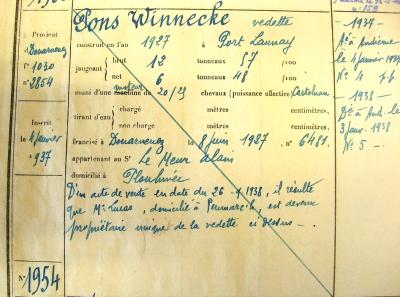 Pons Winnecke vedette
construit en l'an 1927 à Port Launay
jaugeant brut 12 tonneaux 57
net 6 tonneaux 48
moteur
muni d'une machine du 20/25 chevaux (puissance effective)
tirant d'eau chargé mètres centimètres,
non chargé mètres centimètres,
francisé à Douarnenez le 8 juin 1927 n° 6481.
appartenant au Sr Le Meur Alain
domicilié à Plouhinec
D'un acte de vente en date du 26 - 4. 1938, il résulte
que Mr Lucas, domicilié à Penmarc'h, est devenu
propriétaire unique de la vedette ci dessus -
Provient
d Douarnenez
N° 1030
n° 2654
Inscrit
le 4 janvier
1937
N°
1954
1937 -
Dé à Audierne
le 4 janvier 1937
N° 4
- 1938 -
3 janv. 1938
N° 5 -